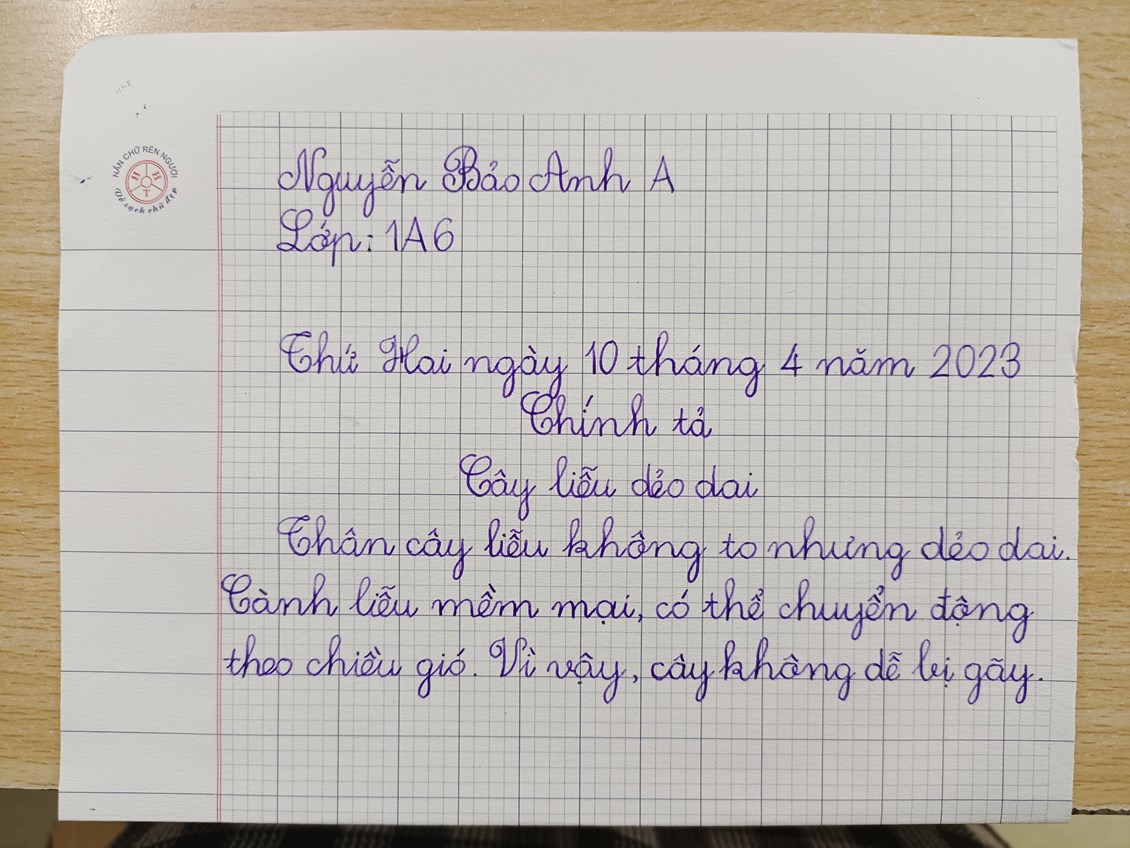 NẮN CHỮ RÈN NGƯỜI
H H T
Vở sạch chữ đẹp
Nguyễn Bảo Anh A
Lớp: 1A6
Thứ Hai ngày 10 tháng 4 năm 2023
Chính tả
Cây liễu dẻo dai
Thân cây liễu không to nhưng dẻo dai.
Cành liễu mềm mại, có thể chuyển động
theo chiều gió. Vì vậy, cây không dễ bị gãy.